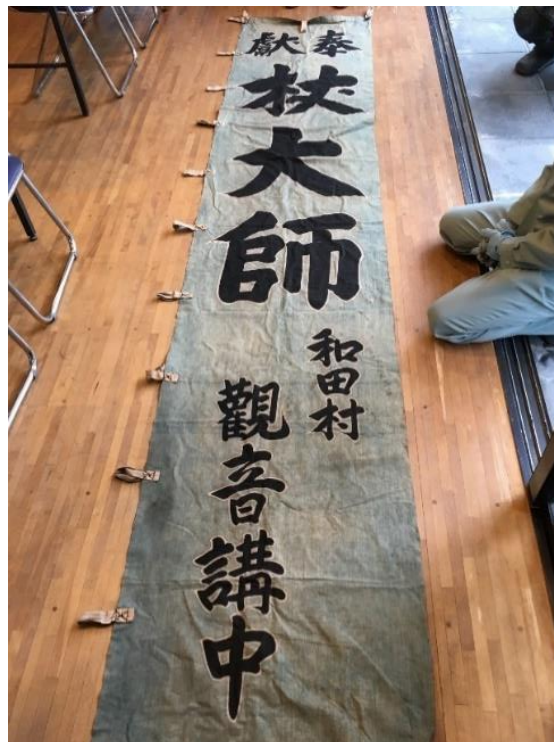 奉獻
杖大師
和田村
觀音講中